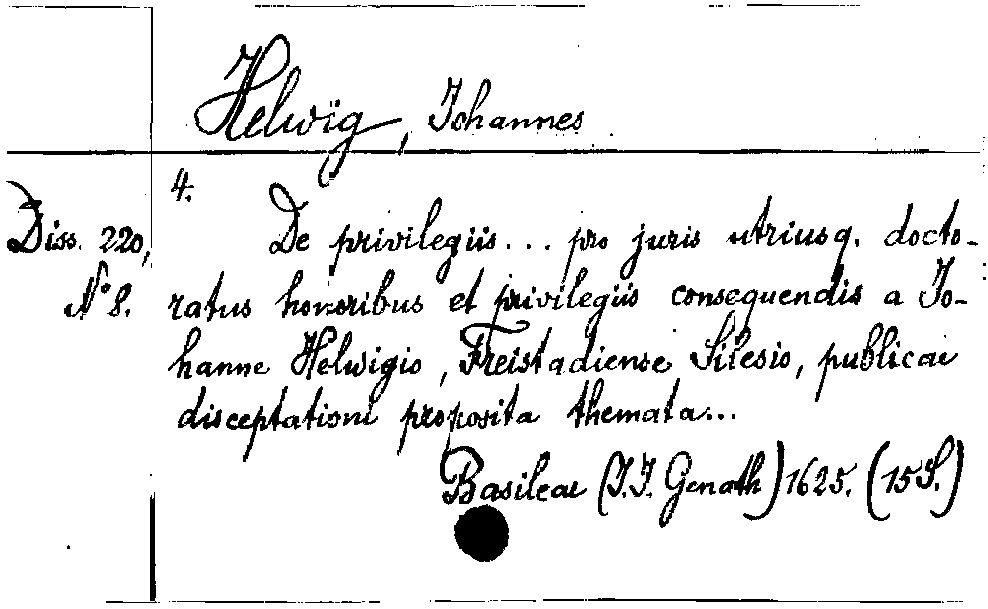 Helwig, Johannes
4.
Diss. 220, De privilegiis... pro juris utriusq. docto-
N° 8. ratus honoribus et privilegiis consequendis a Jo-
hanne Helwigio, Freistadiense Silesio, publicae
disceptationi proposita themata...
Basileae (J.J. Genath) 1625. (15 S.)